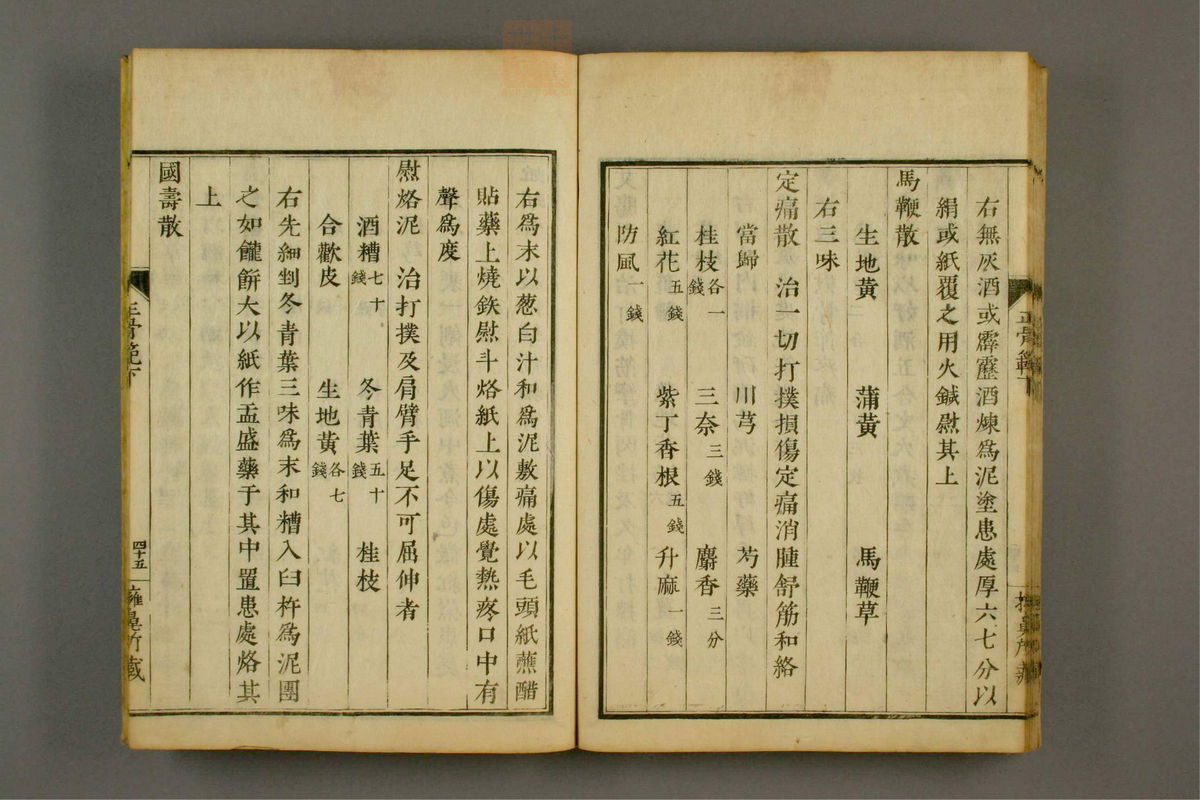 右無灰酒或霹靂酒煉爲泥塗患處厚六七分以
絹或紙覆之用火鍼慰其上
馬鞭散
生地黃 蒲黃 馬鞭草
右三味
定痛散 治一切打撲損傷定痛消腫舒筋和絡
當歸 川芎 芍藥
桂枝各一錢 三奈三錢 麝香三分
紅花五錢 紫丁香根五錢 升麻一錢
防風一錢
右爲末以葱白汁和爲泥敷痛處以毛頭紙蘸醋
貼藥上燒鉄慰斗烙紙上以傷處覺熱疼口中有
聲爲度
慰烙泥 治打撲及肩臂手足不可屈伸者
酒糟七十錢 冬青葉五十錢 桂枝
合歡皮 生地黃各七錢
右先細剉冬青葉三味爲末和糟入臼杵爲泥團
之如饆餠大以紙作盂盛藥于其中置患處烙其
上
國壽散
正骨範下
四十五